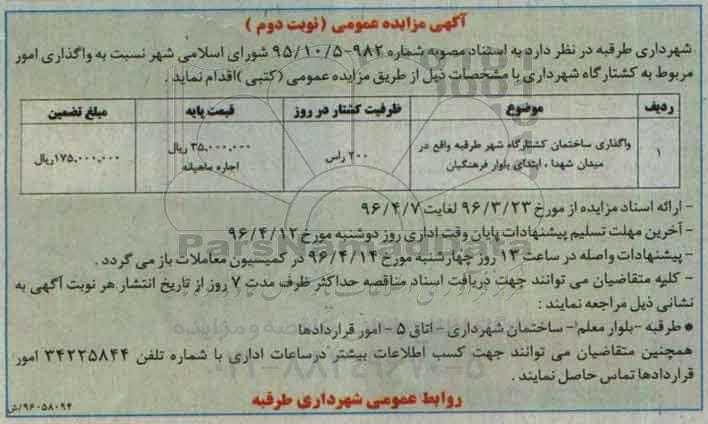 آگهی مزایده عمومی (نوبت دوم)
شهرداری طرقبه در نظر دارد به استناد مصوبه شماره ۹۸۲-۹۵/۱۰/۵ شورای اسلامی شهر نسبت به واگذاری امور
مربوط به کشتارگاه شهرداری با مشخصات ذیل از طریق مزایده عمومی (کتبی) اقدام نماید.
ردیف موضوع ظرفیت کشتار در روز قیمت پایه مبلغ تضمین
۱ واگذاری ساختمان کشتارگاه شهر طرقبه واقع در ۲۰۰ راس ۳۵,۰۰۰,۰۰۰ ریال ۱۷۵,۰۰۰,۰۰۰ریال
میدان شهدا، ابتدای بلوار فرهنگیان اجاره ماهیانه
- ارائه اسناد مزایده از مورخ ۹۶/۳/۲۳ لغایت ۹۶/۴/۷
- آخرین مهلت تسلیم پیشنهادات پایان وقت اداری روز دوشنبه مورخ ۹۶/۴/۱۲
- پیشنهادات واصله در ساعت ۱۳ روز چهارشنبه مورخ ۹۶/۴/۱۴ در کمیسیون معاملات باز می گردد.
- کلیه متقاضیان می توانند جهت دریافت اسناد مناقصه حداکثر ظرف مدت ۷ روز از تاریخ انتشار هر نوبت آگهی به
نشانی ذیل مراجعه نمایند:
● طرقبه -بلوار معلم۱- ساختمان شهرداری - اتاق ۵ - امور قراردادها
همچنین متقاضیان می توانند جهت کسب اطلاعات بیشتر درساعات اداری با شماره تلفن ۳۴۲۲۵۸۴۴ امور
قراردادها تماس حاصل نمایند.
روابط عمومی شهرداری طرقبه
۹۶۰۵۸۰۹۴/ش
ParsNamadData
۰۲۱-۸۸۳۴۹۶۷۰-۵